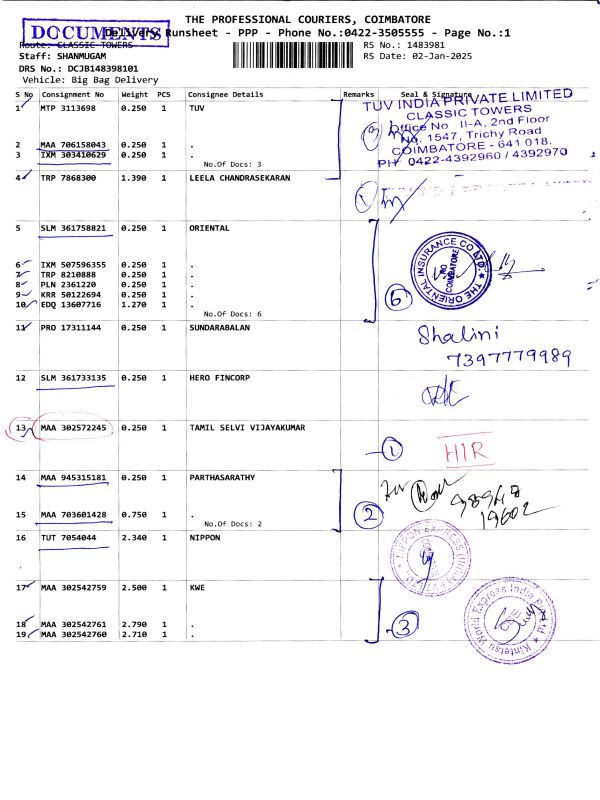 THE PROFESSIONAL COURIERS, COIMBATORE
DOCUMENTS
Delivery Runsheet - PPP - Phone No.:0422-3505555 - Page No.:1
Route: CLASSIC TOWERS
RS No.: 1483981
Staff: SHANMUGAM
RS Date: 02-Jan-2025
DRS No.: DCJB148398101
Vehicle: Big Bag Delivery
S No Consignment No Weight PCS Consignee Details Remarks Seal & Signature
1 MTP 3113698 0.250 1 TUV
TUV INDIA PRIVATE LIMITED
CLASSIC TOWERS
Office No. II-A, 2nd Floor
No. 1547, Trichy Road
COIMBATORE - 641 018.
PH 0422-4392960 / 4392970
3
2 MAA 706158043 0.250 1 .
3 IXM 303410629 0.250 1 .
No.Of Docs: 3
4 TRP 7868300 1.390 1 LEELA CHANDRASEKARAN
1
5 SLM 361758821 0.250 1 ORIENTAL
6 IXM 507596355 0.250 1 .
7 TRP 8210888 0.250 1 .
8 PLN 2361220 0.250 1 .
9 KRR 50122694 0.250 1 .
10 EDQ 13607716 1.270 1 .
No.Of Docs: 6
6
THE ORIENTAL INSURANCE CO LTD.
COIMBATORE
11 PRO 17311144 0.250 1 SUNDARABALAN
Shalini
7397779989
12 SLM 361733135 0.250 1 HERO FINCORP
13 MAA 302572245 0.250 1 TAMIL SELVI VIJAYAKUMAR
1
HIR
14 MAA 945315181 0.250 1 PARTHASARATHY
15 MAA 703601428 0.750 1 .
No.Of Docs: 2
2
16 TUT 7054044 2.340 1 NIPPON
NIPPON EXPRESS
17 MAA 302542759 2.500 1 KWE
18 MAA 302542761 2.790 1 .
19 MAA 302542760 2.710 1 .
3
Kintetsu World Express India P Ltd